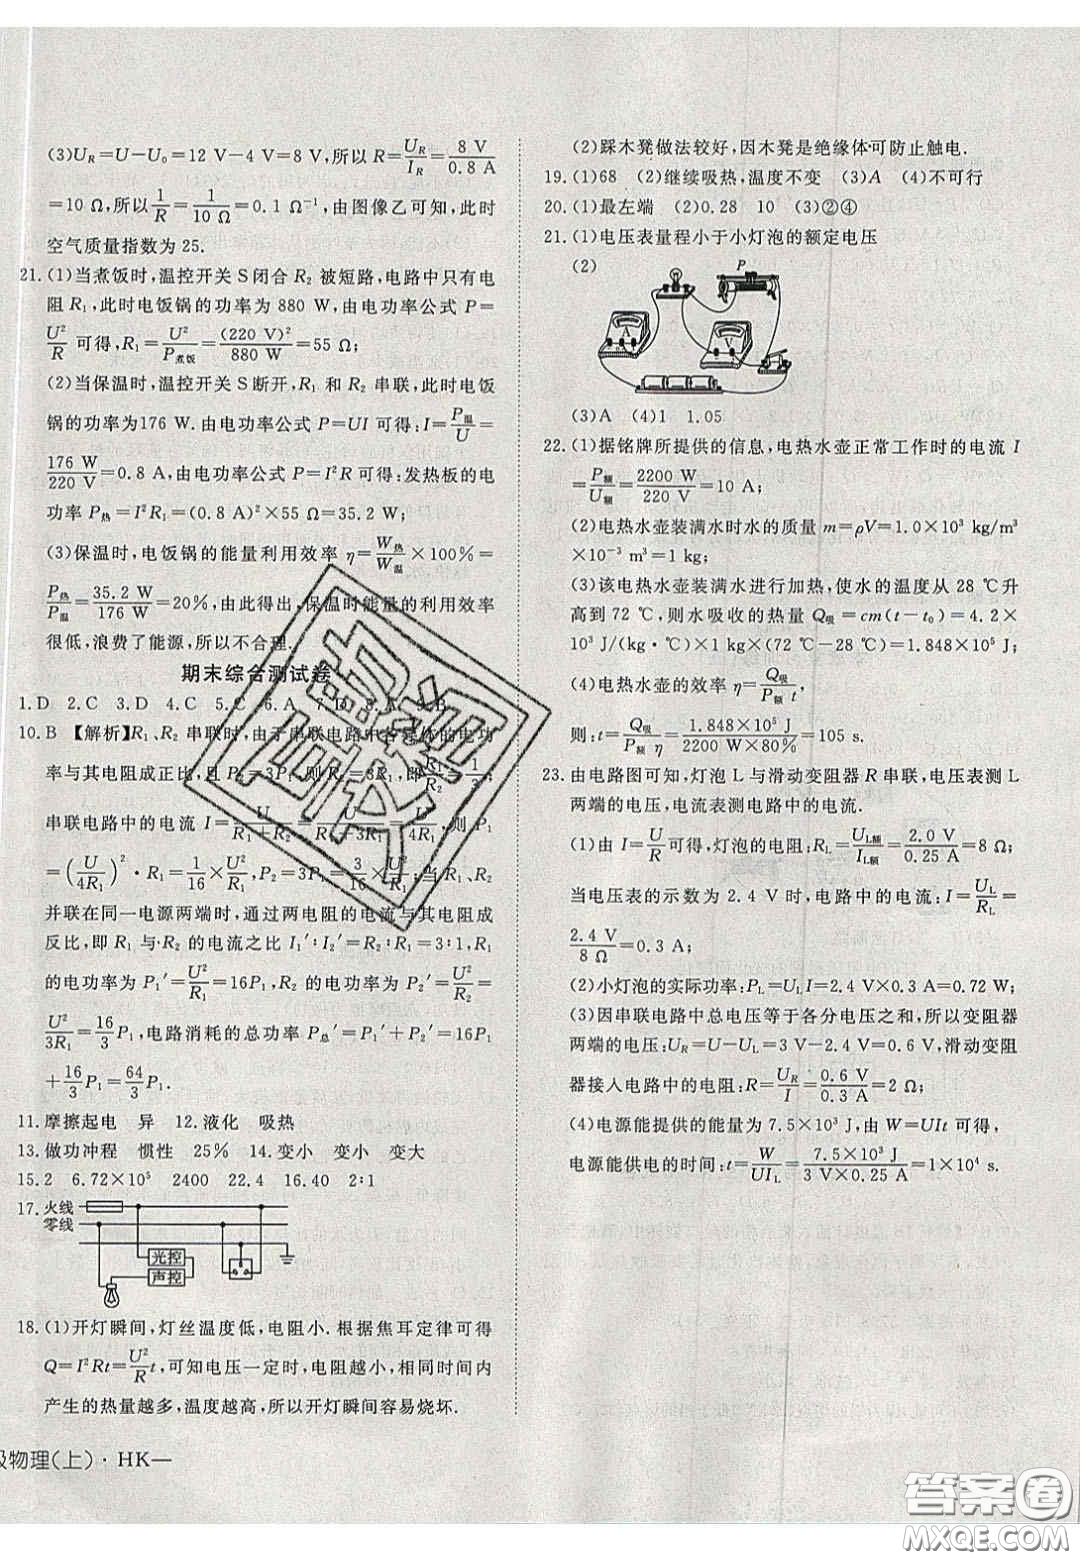 (3)U_R=U-U_0=12 V-4 V=8 V,所以 R=U_R/I_R=8 V/0.8 A
=10 Ω,所以1/R=1/(10 Ω)=0.1 Ω⁻¹,由图像乙可知,此时
空气质量指数为 25.
21.(1)当煮饭时,温控开关 S 闭合 R₂ 被短路,电路中只有电
阻 R₁,此时电饭锅的功率为 880 W,由电功率公式 P=
U²/R 可得,R₁=U²/P煮饭=(220 V)²/880 W=55 Ω;
(2)当保温时,温控开关 S 断开,R₁ 和 R₂ 串联,此时电饭
锅的功率为176 W.由电功率公式 P=UI 可得:I=P温/U=
176 W/220 V=0.8 A,由电功率公式 P=I²R 可得:发热板的电
功率 P热=I²R₁=(0.8 A)²×55 Ω=35.2 W;
(3)保温时,电饭锅的能量利用效率 η=W热/W温×100%=
P热/P温=35.2 W/176 W=20%,由此得出,保温时能量的利用效率
很低,浪费了能源,所以不合理.
期末综合测试卷
1.D 2.C 3.D 4.C 5.C 6.A 7.D 8.A 9.B
10.B 【解析】R₁、R₂ 串联时,由于串联电路中各电的电功
率与其电阻成正比,且 P₂=3P₁,则 R₂=3R₁,即R₁/R₂=1/3,
串联电路中的电流 I=U/(R₁+R₂)=U/(R₁+3R₁)=U/4R₁,则 P₁
=(U/4R₁)²·R₁=1/16×U²/R₁;当 R₁、R₂
并联在同一电源两端时,通过两电阻的电流与其电阻成
反比,即 R₁ 与 R₂ 的电流之比 I₁′∶I₂′=R₂∶R₁=3∶1,R₁
的电功率为 P₁′=U²/R₁=16P₁,R₂ 的电功率为 P₂′=U²/R₂=
U²/3R₁=16/3P₁,电路消耗的总功率 P总′=P₁′+P₂′=16P₁
+16/3P₁=64/3P₁.
11.摩擦起电 异 12.液化 吸热
13.做功冲程 惯性 25% 14.变小 变小 变大
15.2 6.72×10⁵ 2400 22.4 16.40 2∶1
17.火线
零线
光控
声控
18.(1)开灯瞬间,灯丝温度低,电阻小.根据焦耳定律可得
Q=I²Rt=U²/R t,可知电压一定时,电阻越小,相同时间内
产生的热量越多,温度越高,所以开灯瞬间容易烧坏.
级物理(上)·HK—
(2)踩木凳做法较好,因木凳是绝缘体可防止触电.
19.(1)68 (2)继续吸热,温度不变 (3)A (4)不可行
20.(1)最左端 (2)0.28 10 (3)②④
21.(1)电压表量程小于小灯泡的额定电压
(2)
P
A
V
(3)A (4)1 1.05
22.(1)据铭牌所提供的信息,电热水壶正常工作时的电流 I
=P额/U额=2200 W/220 V=10 A;
(2)电热水壶装满水时水的质量 m=ρV=1.0×10³ kg/m³
×10⁻³ m³=1 kg;
(3)该电热水壶装满水进行加热,使水的温度从 28 ℃升
高到 72 ℃,则水吸收的热量 Q吸=cm(t-t₀)=4.2×
10³ J/(kg·℃)×1 kg×(72 ℃-28 ℃)=1.848×10⁵ J;
(4)电热水壶的效率 η=Q吸/P额 t,
则:t=Q吸/P额 η=1.848×10⁵ J/2200 W×80%=105 s.
23.由电路图可知,灯泡 L 与滑动变阻器 R 串联,电压表测 L
两端的电压,电流表测电路中的电流.
(1)由 I=U/R可得,灯泡的电阻:R_L=U_L额/I_L额=2.0 V/0.25 A=8 Ω;
当电压表的示数为 2.4 V 时,电路中的电流:I=U_L/R_L=
2.4 V/8 Ω=0.3 A;
(2)小灯泡的实际功率:P_L=U_L I=2.4 V×0.3 A=0.72 W;
(3)因串联电路中总电压等于各分电压之和,所以变阻器
两端的电压:U_R=U-U_L=3 V-2.4 V=0.6 V,滑动变阻
器接入电路中的电阻:R=U_R/I=0.6 V/0.3 A=2 Ω;
(4)电源能提供的能量为 7.5×10³ J,由 W=UIt 可得,
电源能供电的时间:t=W/UI_L=7.5×10³ J/3 V×0.25 A=1×10⁴ s.
答案圈
MXQE.COM